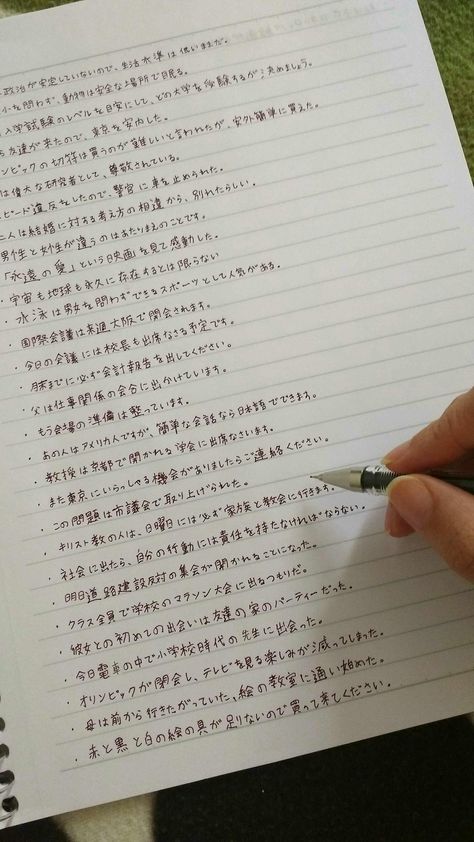 政治が安定していないので、生活水準は低いままだ。
小を問わず、動物は安全な場所で眠る。
入学試験のレベルを目安にして、どの大学を受験するか決めましょう。
友達が来たので、東京を案内した。
ンピックの切符は買うのが難しいと言われたが、案外簡単に買えた。
は偉大な研究者として、尊敬されている。
ピード違反をしたので、警官に車を止められた。
二人は結婚に対する考え方の相違から、別れたらしい。
男性と女性が違うのはあたりまえのことです。
「永遠の愛」という映画を見て感動した。
・宇宙も地球も永久に存在するとは限らない
・水泳は男女を問わずできるスポーツとして人気がある。
・国際会議は来週大阪で開会されます。
・今日の会議には校長も出席なさる予定です。
・月末までに必ず会計報告を出してください。
・父は仕事関係の会合に出かけています。
・もう会場の準備は整っています。
・あの人はアメリカ人ですが、簡単な会話なら日本語でできます。
・教授は京都で開かれる学会に出席なさいます。
・また東京にいらっしゃる機会がありましたらご連絡ください。
・この問題は市議会で取り上げられた。
・キリスト教の人は、日曜日には必ず家族と教会に行きます。
・社会に出たら、自分の行動には責任を持たなければならない。
・明日道路建設反対の集会が開かれることになった。
・クラス全員で学校のマラソン大会に出るつもりだ。
・彼女との初めての出会いは友達の家のパーティーだった。
・今日電車の中で小学校時代の先生に出会った。
・オリンピックが閉会し、テレビを見る楽しみが減ってしまった。
・母は前から行きたがっていた、絵の教室に通い始めた。
・赤と黒と白の絵の具が足りないので買って来てください。